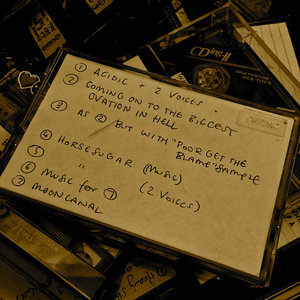 ① ACIDIC + 2 VOICES.
② COMING ON TO THE BIGGEST
OVATION IN HELL
③ AS ② BUT WITH "POOR GET THE
BLAME" SAMPLE
④ HORSESUGAR (MUSIC)
⑤ " (2 VOICES)
⑥ MUSIC FOR ⑦
⑦ MOONCANAL